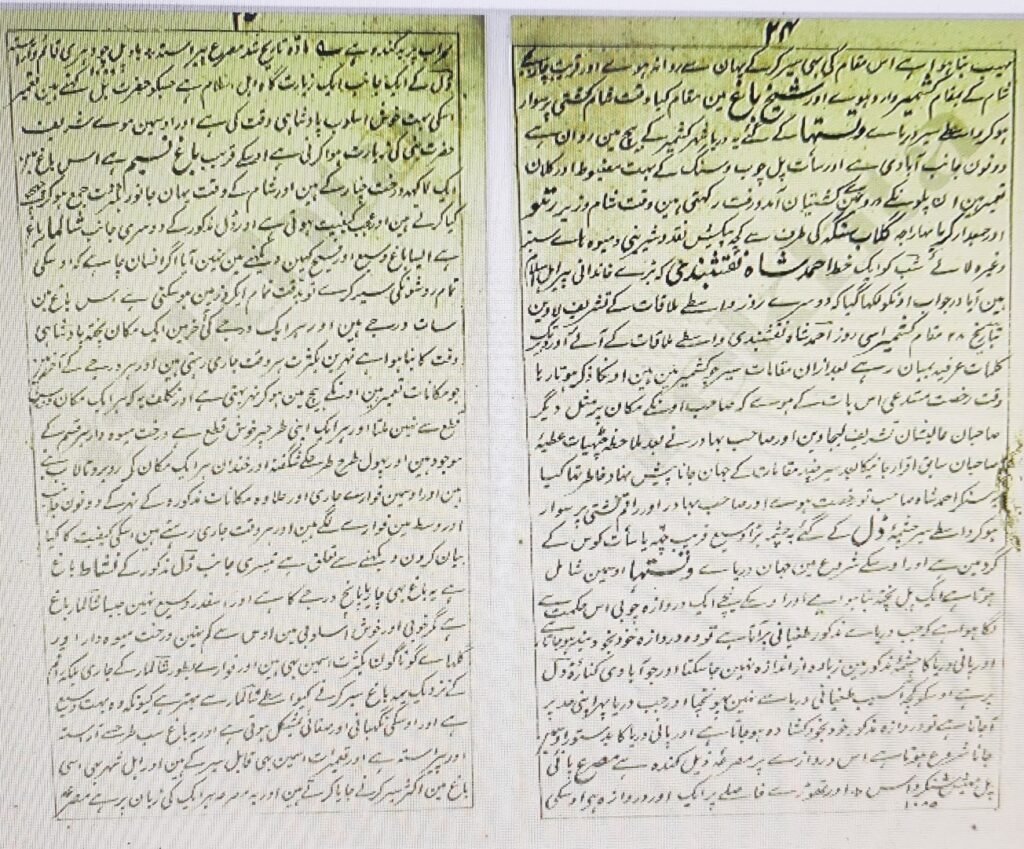 ۲۴
عجیب بنا ہوا ہے اس مقام کی بھی سیر کرکے یہان سے روانہ ہوے اور قریب
شام کے بمقام کشمیر وارد ہوے اور شیخ باغ مین مقام کیا وقت شام کشتی پر سوار
ہوکر واسطے سیر دریاے وتستہا کے گئے یہ دریا شہر کشمیر کے بیچ مین روان ہے
دونون جانب آبادی ہے اور سات پل چوب و سنگ کے بہت مضبوط اور کلان
تعمیر ہین ان پلونکے کشتیان آمد و رفت رکھتی ہین وقت شام وزیر رتنو
اور جمعدار کرپا مہاراجہ گلاب سنگہ کی طرف سے کچہ پیشکش نقد و شیرینی و میوہ ہاے سبز
وغیرہ لائے شب کو ایک خط احمد شاہ نقشبندی کہ بڑے خاندانی پیر اہل اسلام
ہین آیا در جواب اونکو لکھا گیا کہ دوسرے روز واسطے ملاقات کے تشریف لاوین
بتاریخ ۲۸ مقام کشمیر اسی روز احمد شاہ نقشبندی واسطے ملاقات کے آئے اور دیر تک
کلمات عرفیہ بیان رہے بعد ازان مقامات سیر جو کشمیر مین ہین اونکا ذکر ہوتا رہا
وقت رخصت مستدعی اس بات کے ہوے کہ صاحب اونکے مکان پر مثل دیگر
صاحبان عالیشان تشریف لیجاوین اور صاحب بہادر نے بعد ملاحظہ چٹھیات عطیۂ
صاحبان سابق اقرار جانیکا بعد سیر چند مقامات کے جہان جانا پیش نہاد خاطر تھا کیا
یہ سنکر احمد شاہ صاحب تو رخصت ہوے اور صاحب بہادر اور راقم کشتی پر سوار
ہوکر واسطے سیر چشمۂ ڈل کے گئے یہ چشمہ بڑا وسیع قریب چھ یا سات کوس کے
گرد مین ہے اور اوسکے شروع مین جہان دریاے وتستہا اوسمین شامل
ہوتا ہے ایک پل پختہ بنا ہوا ہے اور اوسکے نیچے ایک دروازہ چوبی اس حکمت سے
لگا ہوا ہے کہ جب دریاے مذکور طغیانی پر آتا ہے تو وہ دروازہ خود بخود بند ہوجاتا ہے
اور پانی دریا کا چشمۂ مذکور مین زیادہ از اندازہ نہین جا سکتا اور جو آبادی کنارۂ ڈل
پر ہے اوسکو کچہ آسیب طغیانی دریا سے نہین پہونچتا اور جب دریا پہر اپنی حد پر
آ جاتا ہے تو دروازہ مذکور خود بخود کشادہ ہوجاتا ہے اور پانی دریا کا بدستور اوسمین
جانا شروع ہوتا ہے اس دروازے پر مصرعۂ ذیل کندہ ہے مصرع بانی
پل اور تھوڑے فاصلے پر ایک اور دروازہ ہے اوسکی
۱۰۸۵
محراب پر یہ کندہ ہے مادۂ تاریخ شد مصرع پیراستہ
ڈل کے ایک جانب ایک زیارت گاہ اہل اسلام ہے جسکو حضرت بل کہتے ہین تعمیر
اسکی بہت خوش اسلوب پادشاہی وقت کی ہے اور اوسمین موے شریف
حضرت نبی کی زیارت ہوا کرتی ہے اوسکے قریب باغ نسیم ہے اس باغ مین
ایک لاکھ درخت چنار کے ہین اور شام کے وقت یہان جانور بکثرت جمع ہوکر
کیا کرتے ہین اور عجب کیفیت ہوتی ہے اور ڈل مذکور کے دوسری جانب شالامار باغ
ہے ایسا باغ وسیع اور فسیح کہین دیکہنے مین نہین آیا اگر انسان چاہے کہ اوسکی
تمام روشونکی سیر کرے تو بدقت تمام ایک روز مین ہوسکتی ہے اس باغ مین
سات درجے ہین اور ہر ایک درجے کی آخر مین ایک مکان پختہ پادشاہی
وقت کا بنا ہوا ہے نہرین بکثرت ہر وقت جاری رہتی ہین اور ہر درجے کے آخر مین
جو مکانات تعمیر ہین اونکے بیچ مین ہوکر نہر بہتی ہے اور تکلف یہ کہ ہر ایک مکان دوسرے
قطع سے نہین ملتا اور ہر ایک اپنی طرح پر خوش قطع ہے درخت میوہ دار ہر قسم کے
موجود ہین اور پہول طرح طرح کے شگفتہ اور خندان ہر ایک مکان کے روبرو تالاب بنے
ہین اور اوسمین فوارے جاری اور علاوہ مکانات مذکورہ کے نہر کے دونون جانب
اور وسط مین فوارے لگے ہین اور ہر وقت جاری رہتے ہین اسکی کیفیت کا کیا
بیان کرون دیکہنے سے تعلق ہے تیسری جانب ڈل مذکور کے نشاط باغ
ہے یہ باغ بھی چار یا پانچ درجے کا ہے اور اسقدر وسیع نہین جیسا شالامار باغ
ہے مگر خوبی اور خوش اسلوبی مین اوس سے کم نہین درخت میوہ دار اور
گلہاے گوناگون بکثرت اسمین بھی ہین اور فوارے بطور شالامار کے جاری بلکہ راقم
کے نزدیک یہ باغ سیر کرنے کیواسطے شالامار سے بہتر ہے کیونکہ وہ بہت وسیع
ہے اور اوسکی نگہبانی اور صفائی مشکل ہوتی ہے اور یہ باغ سب طرح سے آراستہ
اور پیراستہ ہے اور تعمیرات اسمین بھی قابل سیر کے ہین اور اہل شہر بھی اسی
باغ مین اکثر سیر کرنے جایا کرتے ہین اور یہ مصرعہ ہر ایک کی زبان پر ہے مصرعہ